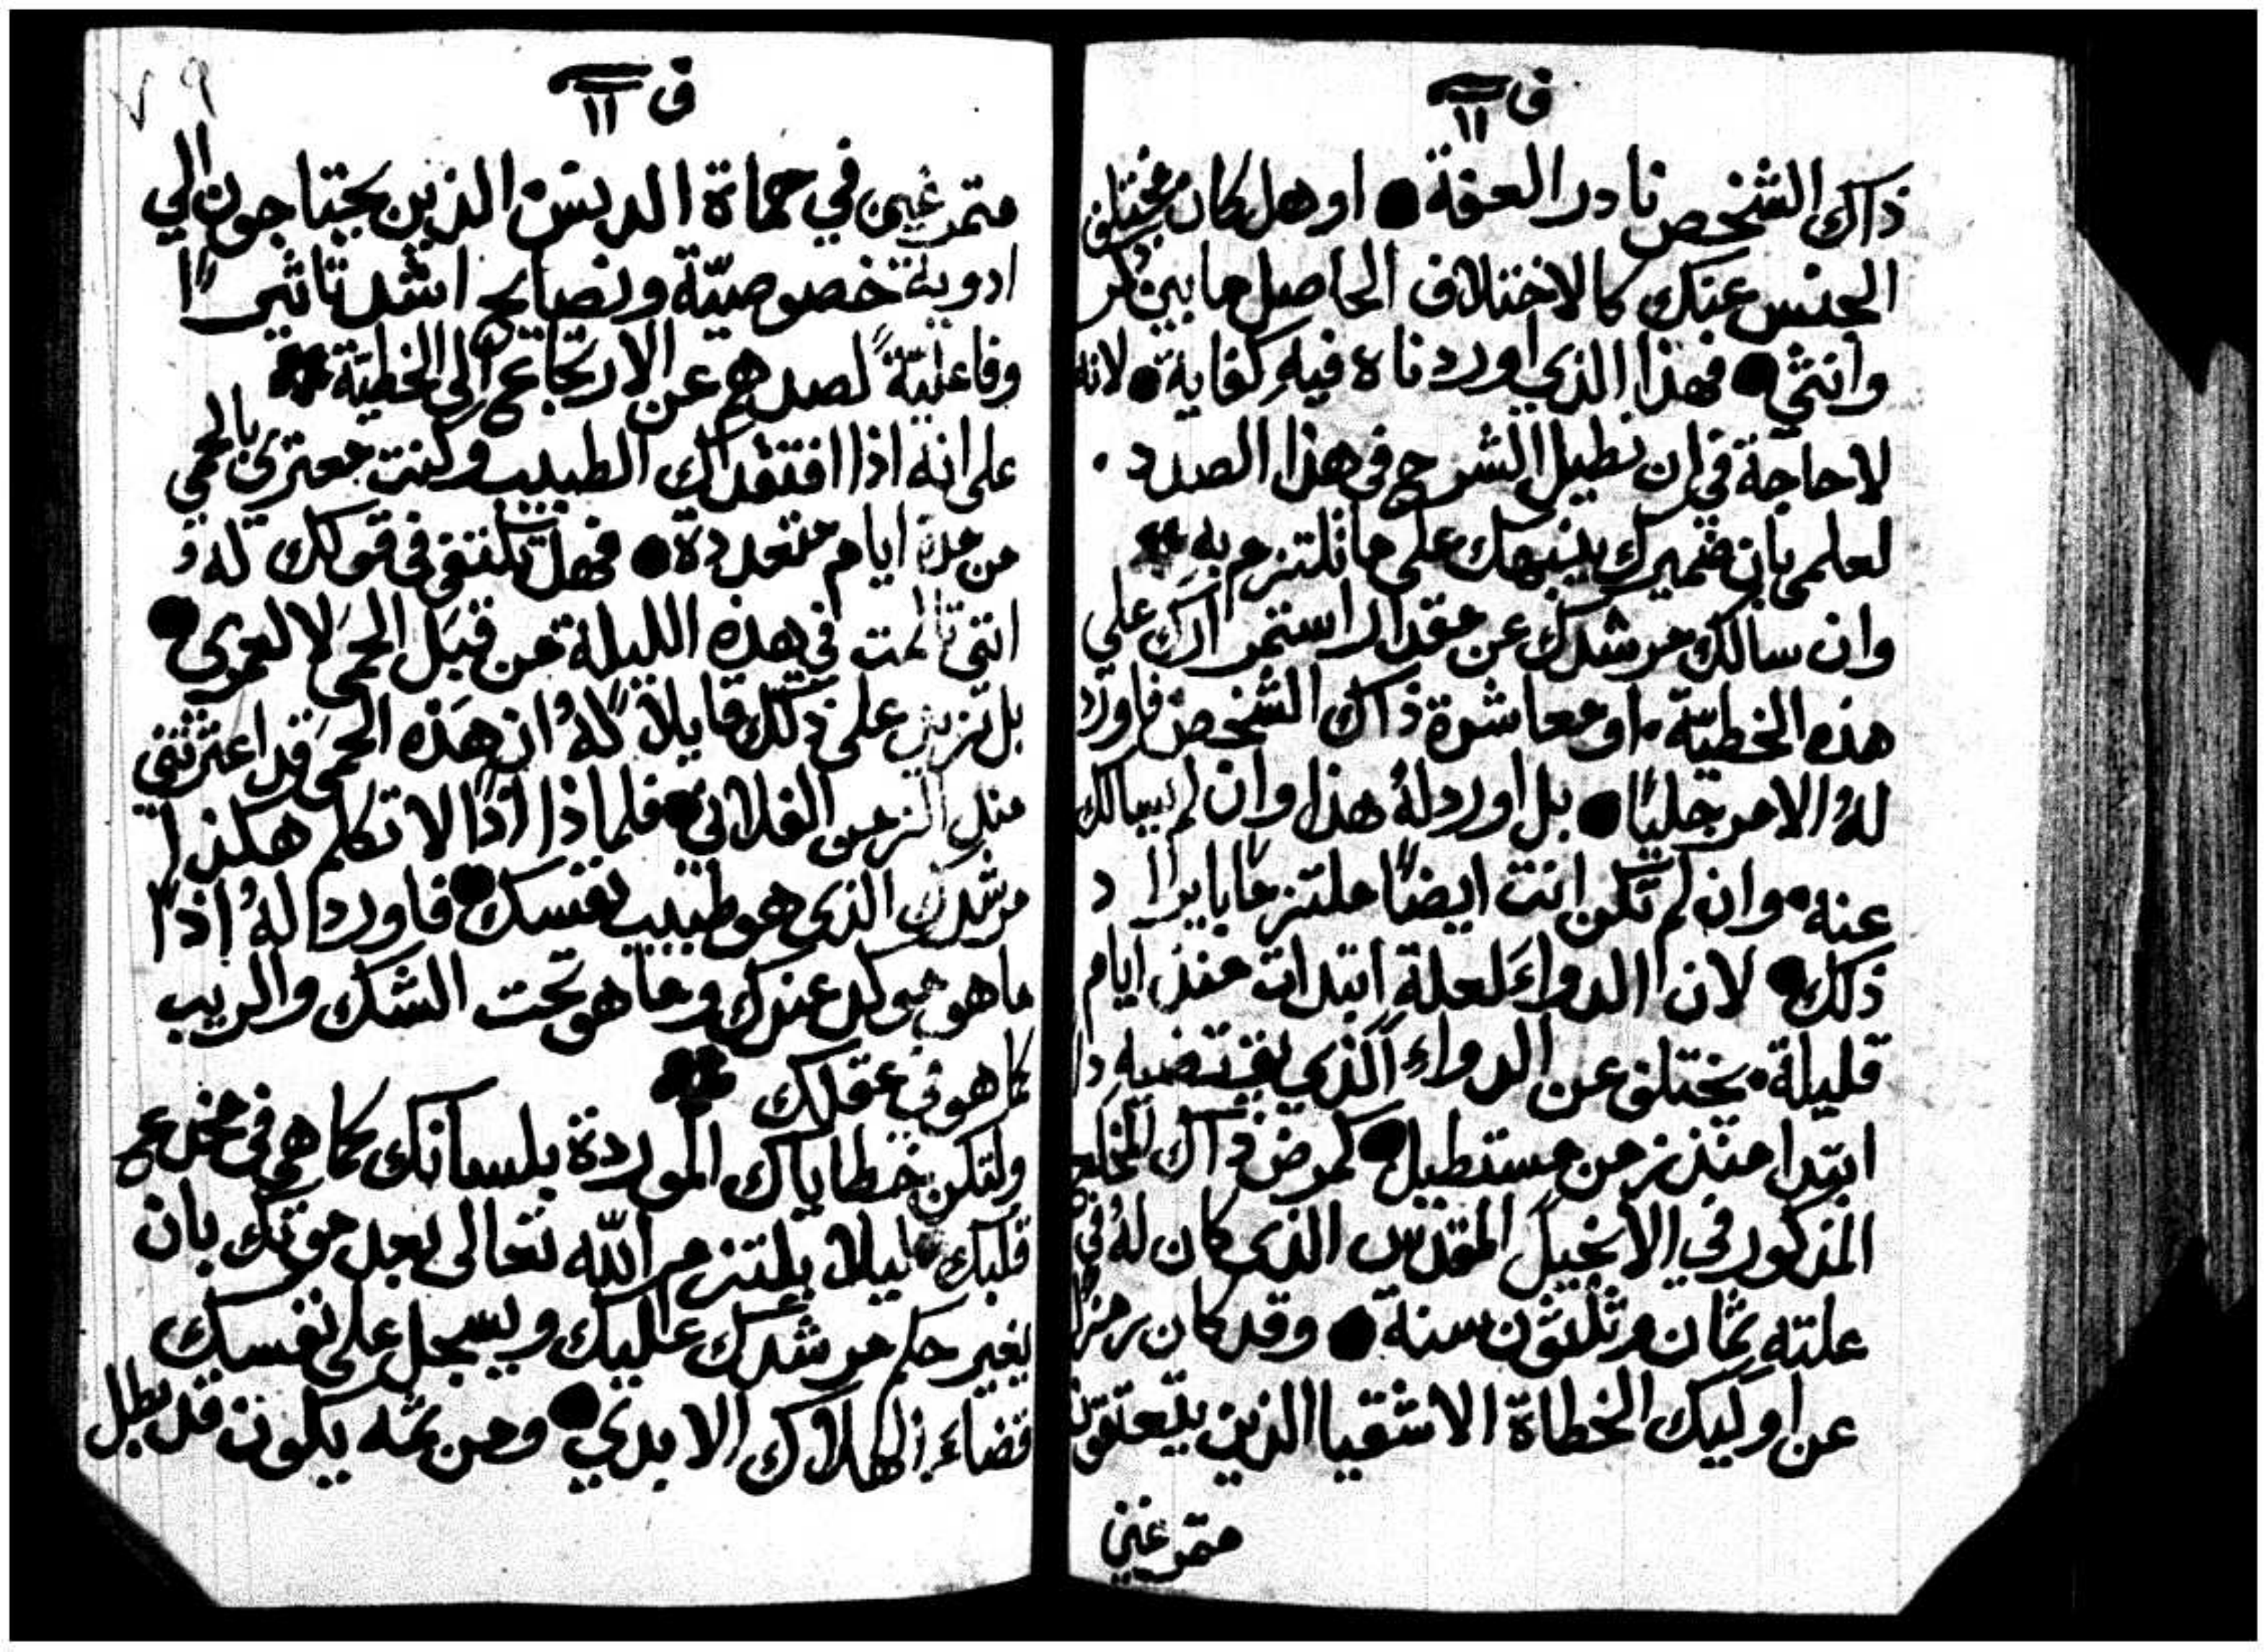 ف ١١
ذاك الشخص نادر العفة • او هل كان مختلف
الجنس عنك كالاختلاف الحاصل ما بين ذكر
وانثى • فهذا الذي اوردناه فيه كفاية • لانه
لا حاجة في ان نطيل الشرح في هذا الصدد .
لعلمي بان ضميرك ينبهك على ما تلتزم به
وان سالك مرشدك عن مقدار استمرارك علي
هذه الخطيّة • او معاشرة ذاك الشخص فاورد
لهُ الامر جليًا • بل اورد لهُ هذا وان لم يسالك
عنه • وان لم تكن انت ايضًا ملتزمًا بايراد
ذلك • لان الدواءَ لعلةٍ ابتدات منذ ايام
قليلة • يختلف عن الدواءِ الذي يقتضيه دا
ابتدا منذ زمن مستطيل • كمرض ذاك المخلع
المذكور في الانجيل المقدس الذي كان لهُ في
علته ثمان وثلثون سنة • وقد كان رمزًا
عن اوليك الخطاة الاشقيا الذين يلتعقون
متمرغين
٧٩
ف ١١
متمرغين في حماة الدنس الذين يحتاجون الي
ادوية خصوصيّة ونصايح اشد تاثيرًا
وفاعليّةً لصدهم عن الارتجاع الى الخطية
على انه اذا افتقدك الطبيب وكنت معتري بالحمى
من مدة ايام متعددة • فهل تكتفي في قولك له
انني تالمت في هذه الليلة من قبَل الحمى لا لعمري •
بل تزيد على ذلك قايلاً لهُ ان هذه الحمى قد اعترتني
منذ الزمن الفلاني • فلماذا اذًا لا تكلم هكذا
مرشدك الذي هو طبيب نفسك • فاورد لهُ اذًا
ما هو موكد عندك وما هو تحت الشك والريب
كما هو في عقلك
ولتكن خطاياك الموردة بلسانك كما هي في مخدع
قلبك ليلا يلتزم الله تعالى بعد موتك بان
يغير حكم مرشدك عليك ويسجل على نفسك
قضاء الهلاك الابدي • ومن ثمه يكون قد بطل